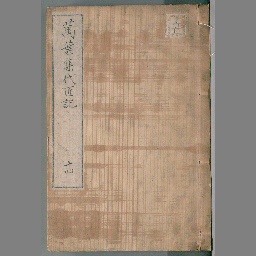 萬葉集代匠記
十四